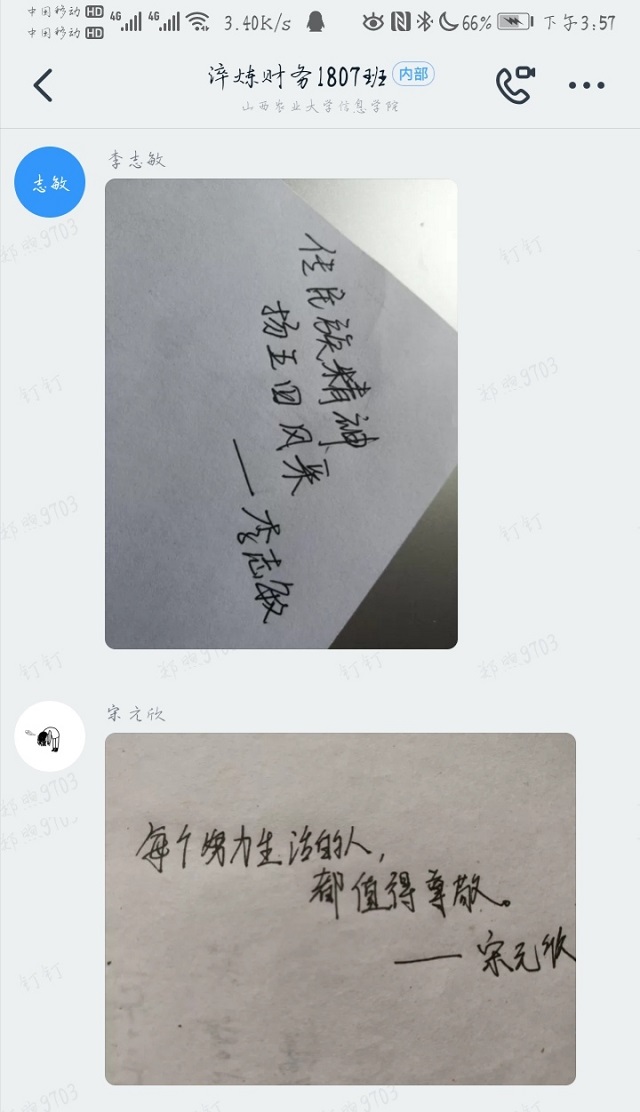 中国移动 HD 4G 4G 3.40K/s 66% 下午3:57
中国移动 HD
淬炼财务1807班 内部
山西农业大学信息学院
李志敏
志敏
传民族精神
扬五四风采
——李志敏
宋元欣
每个努力生活的人，
都值得尊敬。
——宋元欣
钉钉